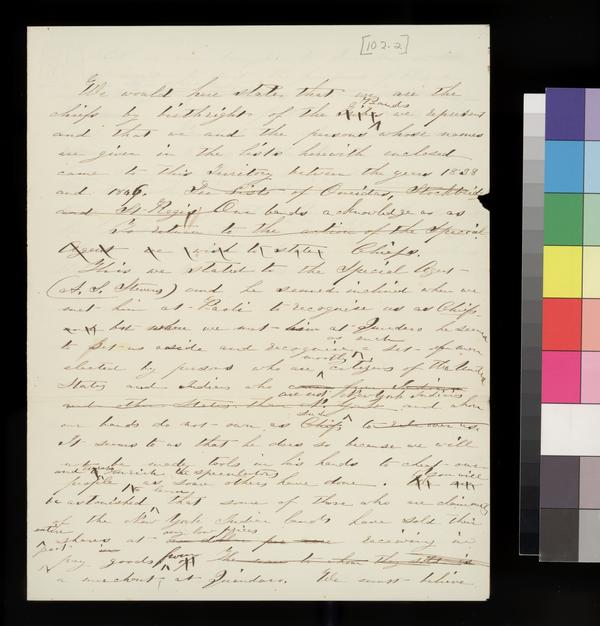 [102.2]
We would here state that we are the
Bands
chiefs by birthright of the we represent
and that we and the persons whose names
are given in the lists herewith enclosed
came to this Territory between the years 1838
and 1846. The Lists of Oneidas, Stockbridge
and St Regis Our bands acknowledge us as
In return to the action of the Special
Agent we wish to state Chiefs.
This we stated to the Special Agent
(A. S. Stevens) and he seemed inclined when we
met him at Paoli to recognise us as Chiefs
but when we met him at Quindaro he seemed
as such
to set us aside and recognise a set of men
mostly
elected by persons who are citizens of the United
States and Indians who
are not New York Indians
and other States than New York and whom
such
our bands do not own as Chiefs to rule over us.
It seems to us that he does so because we will
not be made tools in his hands to cheat our
and enrich the speculators
people as some others have done. You will
to learn
be astonished that some of those who are claiming
of the New York Indian lands have sold their
entire very low prices
shares at receiving in
part
pay goods from
a merchant at Quindaro. We must believe